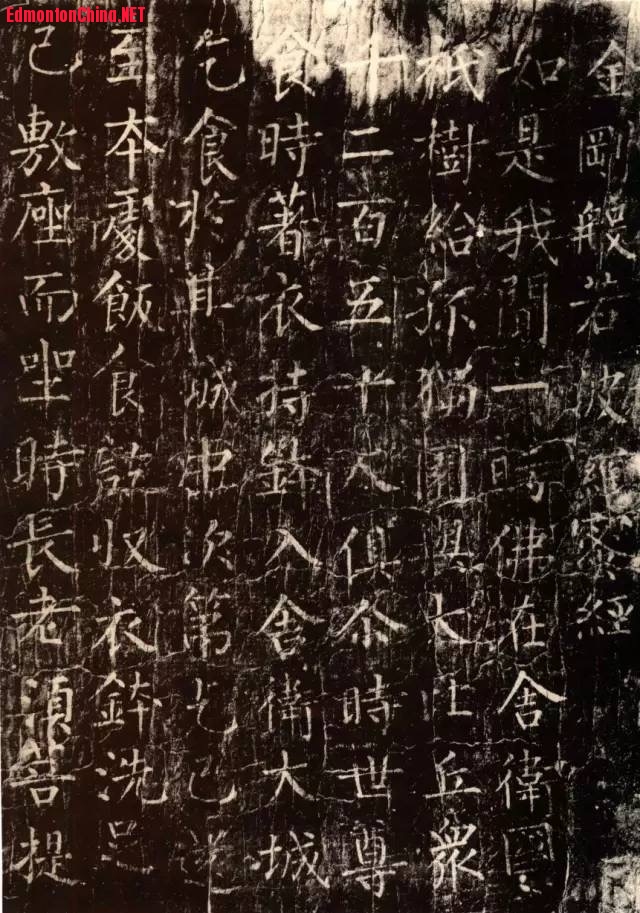 EdmontonChina.NET
金剛般若波羅蜜經
如是我聞一時佛在舍衛國
祇樹給孤獨園與大比丘眾
十二百五十人俱尒時世尊
食時著衣持鉢入舍衛大城
乞食於其城中次第乞已還
至本處飯食訖收衣鉢洗足
已敷座而坐時長老須菩提